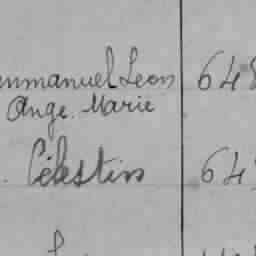 Emmanuel Leon 648
Ange. Marie
. Célestin 64